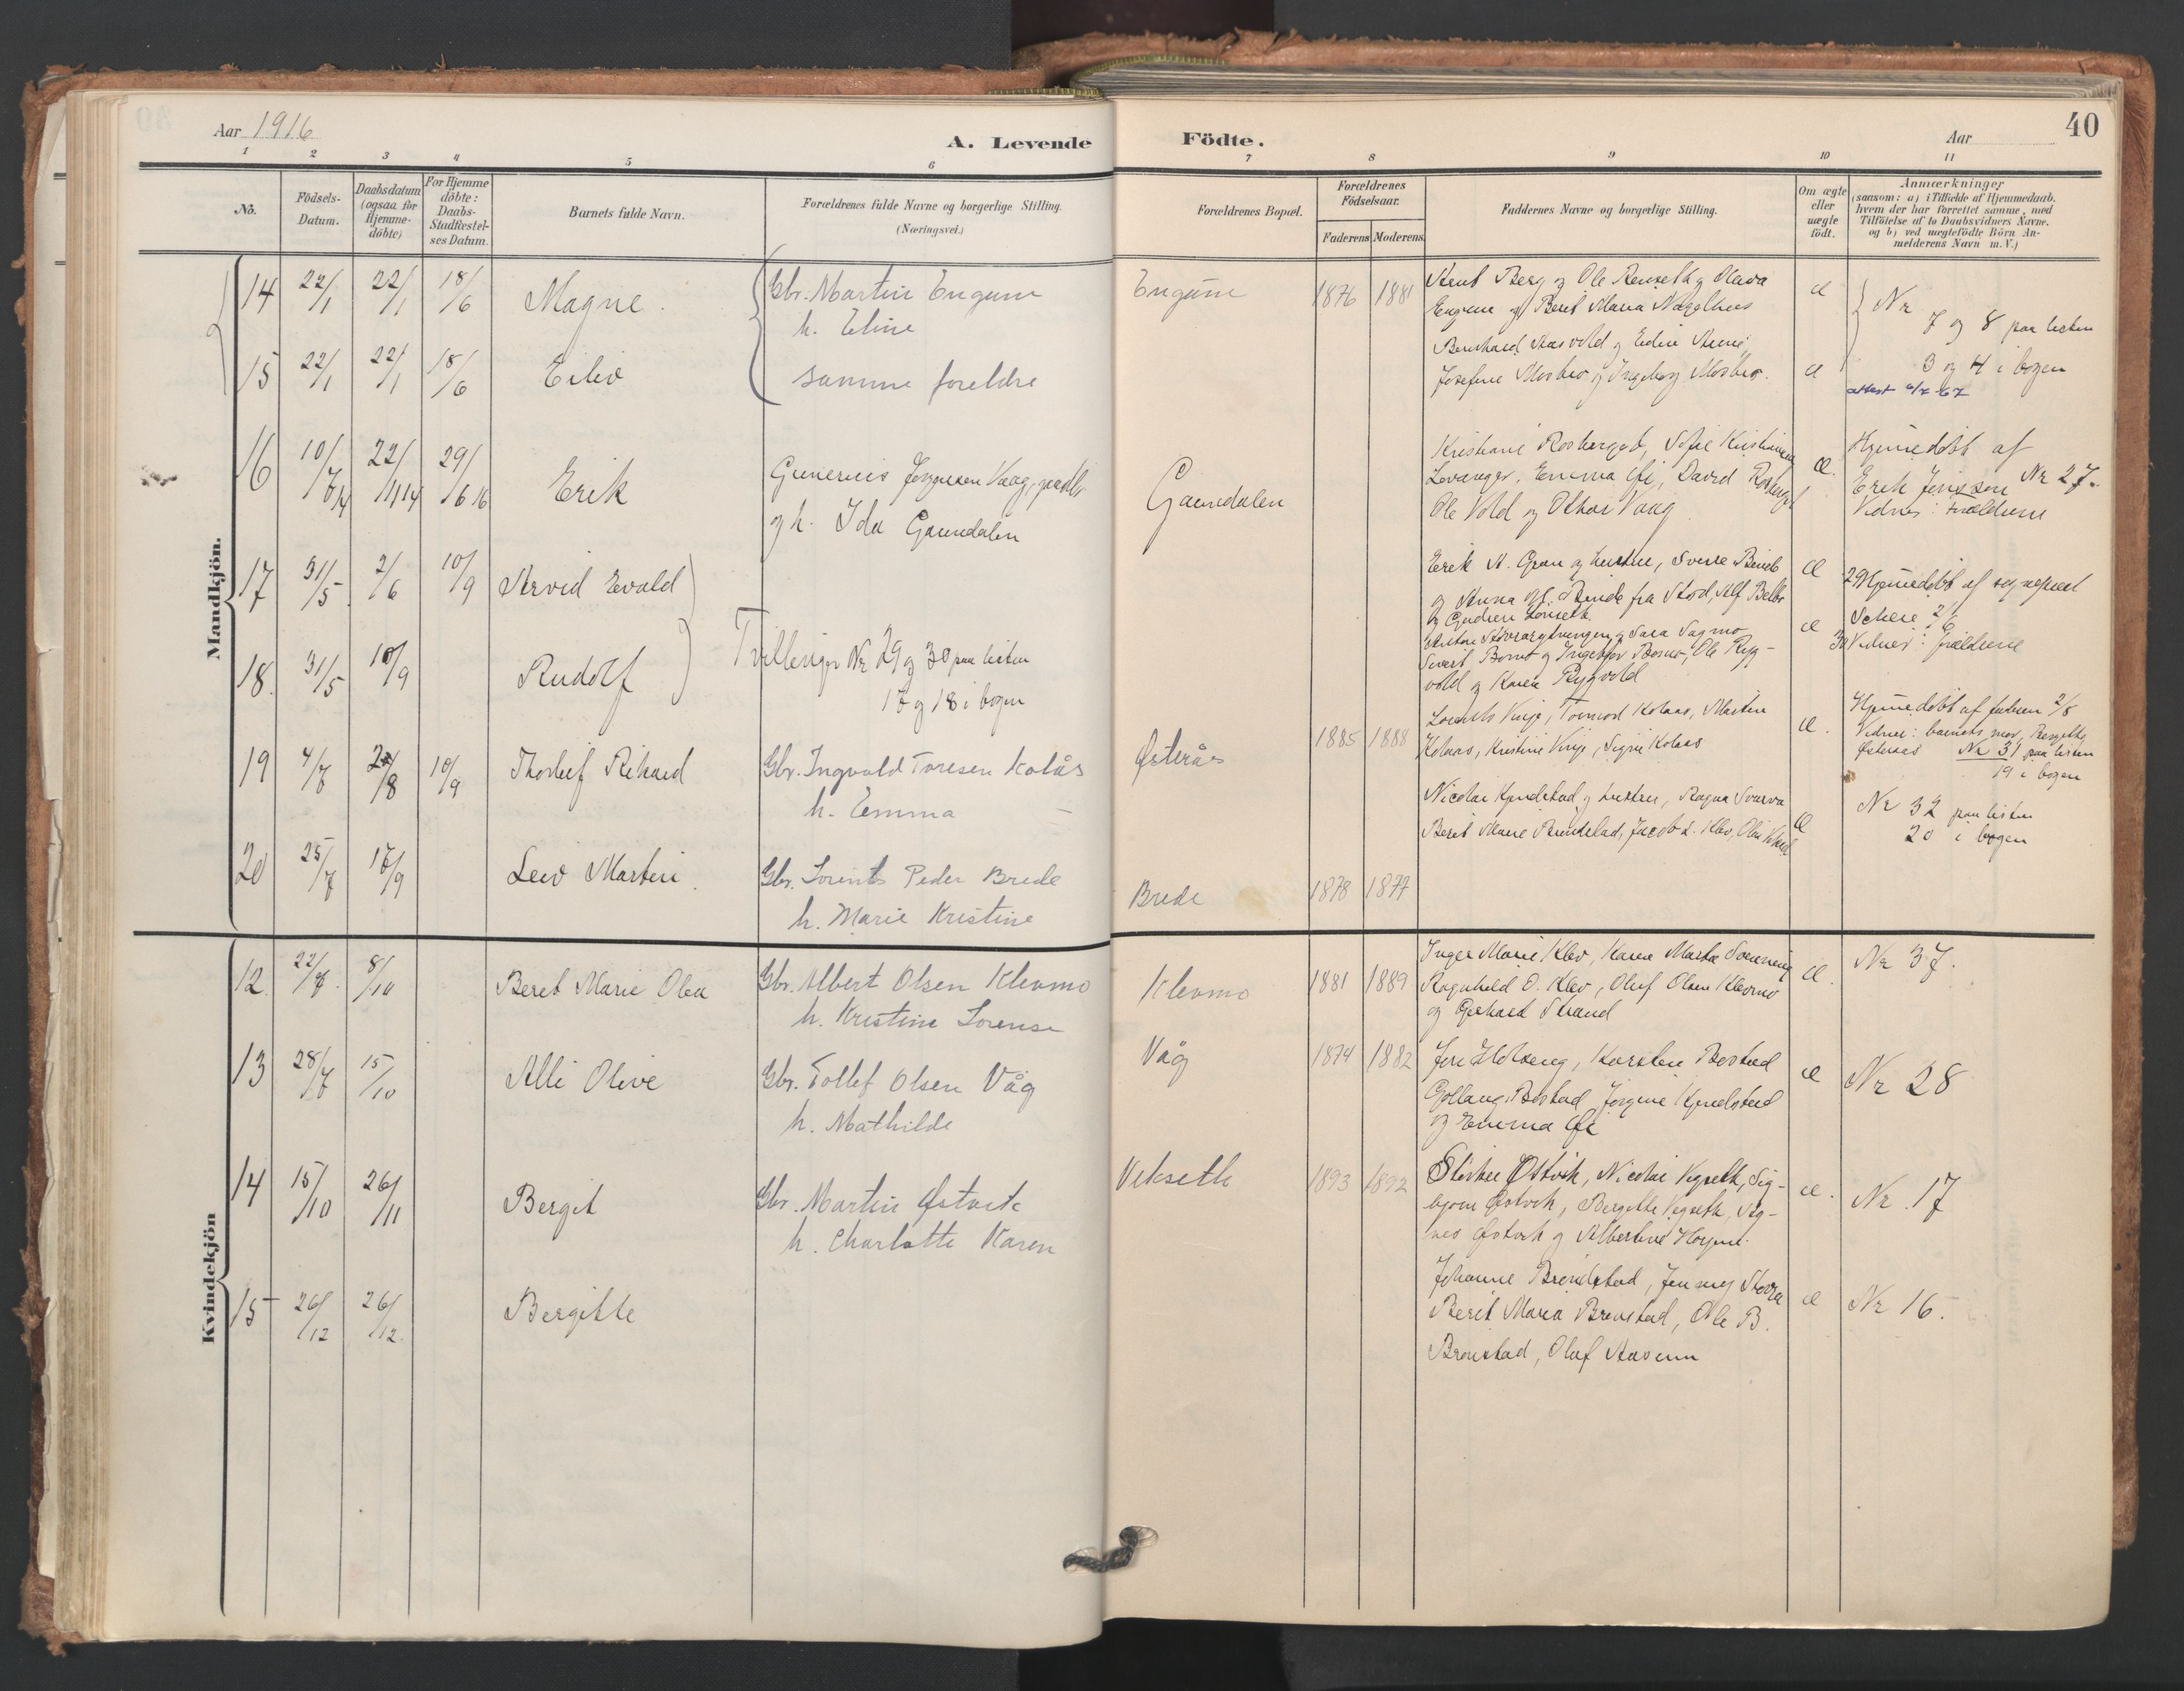 Aar 1916
A. Levende
1 2 3 4 5 6
No.
Födsels-
Datum.
Daabsdatum
(ogsaa for
Hjemme-
döbte)
For Hjemme
döbte:
Daabs-
Stadfæstel-
ses Datum.
Barnets fulde Navn.
Forældrenes fulde Navne og borgerlige Stilling.
(Næringsvei.)
Mandkjön.
14 22/1 22/1 18/6 Magne. Gbr. Martin Engum
h. Eline
15 22/1 22/1 18/6 Eilev samme foreldre
16 10/7 14 22/11 14 29/6 16 Erik Gunerius Jørgensen Vaag,
og h. Ida Gaundalen
17 31/5 2/6 10/9 Arvid Evald
Tvillinger Nr 29 og 30 paa listen
18. 31/5 10/9 Rudolf
17 og 18 i bogen
19 4/7 2/8 10/9 Thorleif Rikard Gbr. Ingvald Toresen Kolås
h. Emma
20 25/7 17/9 Leiv Martin. Gbr. Lorents Peder Brede
h. Marie Kristine
Kvindekjön
12 22/7. 8/10 Beret Marie Olea Gbr. Albert Olsen Klevmo
h. Kristine Lorense
13 28/7 15/10 Alli Olive Gbr. Tollef Olsen Våg
h. Mathilde
14 15/10 26/11 Bergit Gbr. Martin Østvik
h. Charlotte Karen
15 26/12 26/12. Bergitte
Födte.
Aar
40
7 8 9 10 11
Forældrenes Bopæl.
Forældrenes
Födselsaar.
Faderens Moderens
Faddernes Navne og borgerlige Stilling.
Om ægte
eller
uægte
födt.
Anmærkninger
(saasom: a) i Tilfælde af Hjemmedaab.
hvem der har forrettet samme, med
Tilföielse af to Daabsvidners Navne.
og b) ved uægtefödte Börn An-
melderens Navn m. V.)
Engum 1876 1881 Berg og Ole Renseth og Olava
Engum og Beret Maria Nagelhus
Bernhard Aasvold og Edin
Josefine Mosbro og Ingeborg Mosbro.
æ
æ
Nr
7 og 8 paa listen
3 og 4 i bogen
attest 4/7 67
Gaundalen
Kristiane Rosbergget, Sofie Kristiansen
Levanger, Emma Øi, David
Ole Vold og Othar Vaag
æ.
Hjemmedøbt af
Erik Jenssen Nr 27.
Vidner: forældrene
Erik A. Gran og hustru, Sverre Binde
og Anna Binde fra Stod, Alf
og Gudrun
og Sara Sagmo
Sivert Bomo og Ingeborg Bomo, Ole Ryg-
vold og Karen Rygvold
æ
æ
29 Hjemmedøbt af sogneprest
2/6
30 Vidner: forældrene
Østerås 1885 1888
Lorents Vinje, Tormod Kolaas, Martin
Kolaas, Kristine Vinje, Signe Kolaas
æ.
Hjemmedøbt af faderen 2/8
Vidner: barnets mor, Bergitte
Østeraas Nr 31 paa listen
19 i bogen
Nicolai Kjendstad og hustru, Ragna
Berit Marie Brendstad, Jacob L. Klev,
æ
Nr 32 paa listen
20 i bogen
Brede 1878 1877
Klevmo 1881 1889
Inger Marie Klev, Karen Marta
Ragnhild O. Klev, Oluf Olsen Klevmo
og Gerhard Strand
æ.
Nr 37.
Våg 1874 1882
Jon Holseng, Karsten Bostad
Gollaug Bostad, Jørgine Kjendstad
og Emma Øi
æ
Nr 28
Vekseth 1893 1892
Østvik, Nicolai Vegseth, Sig-
bjørn Østvik, Bergitte Vegseth, Ag-
nes Østvik og Albertine
æ.
Nr. 17
Johanne Brendstad, Jenny
Berit Maria Brenstad, Ole B.
Brenstad, Oluf Aasum
æ
Nr 16.